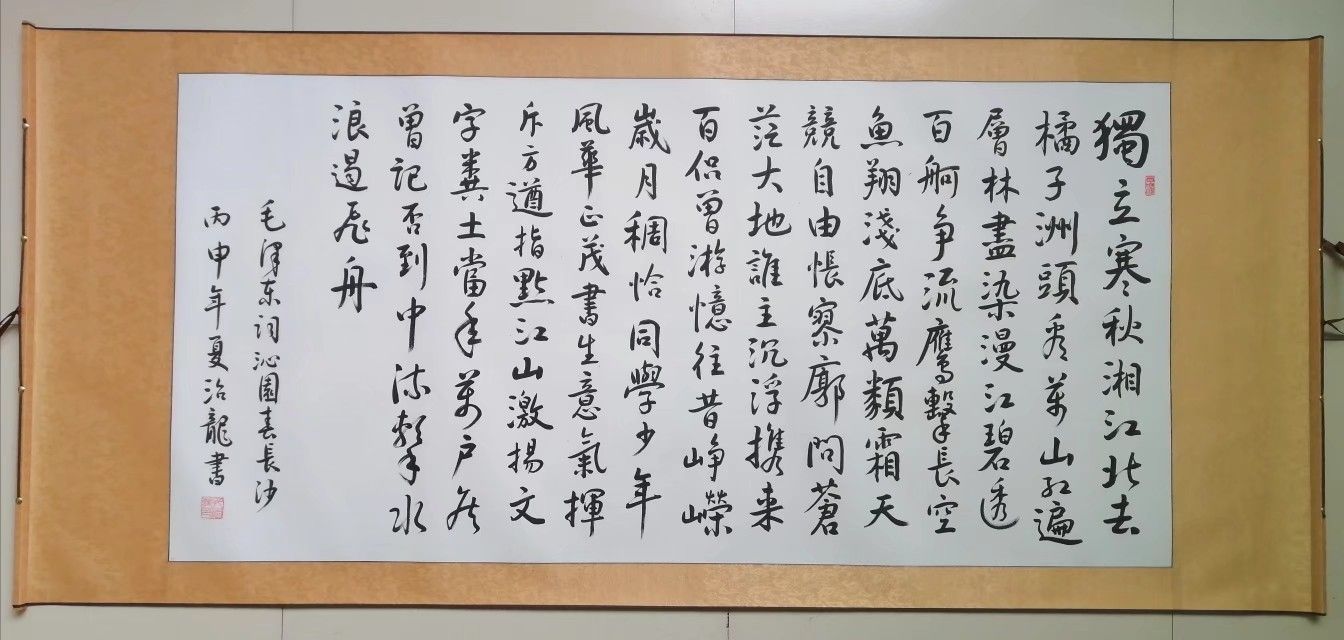 獨立寒秋湘江北去
橘子洲頭看萬山紅遍
層林盡染漫江碧透
百舸争流鷹擊長空
魚翔淺底萬類霜天
競自由悵寥廓問蒼
茫大地誰主沉浮携来
百侣曾游憶往昔崢嶸
歲月稠恰同學少年
風華正茂書生意氣揮
斥方遒指點江山激揚文
字糞土當年萬户侯
曾記否到中流擊水
浪遏飛舟
毛澤东詞沁園春長沙
丙申年夏治龍書